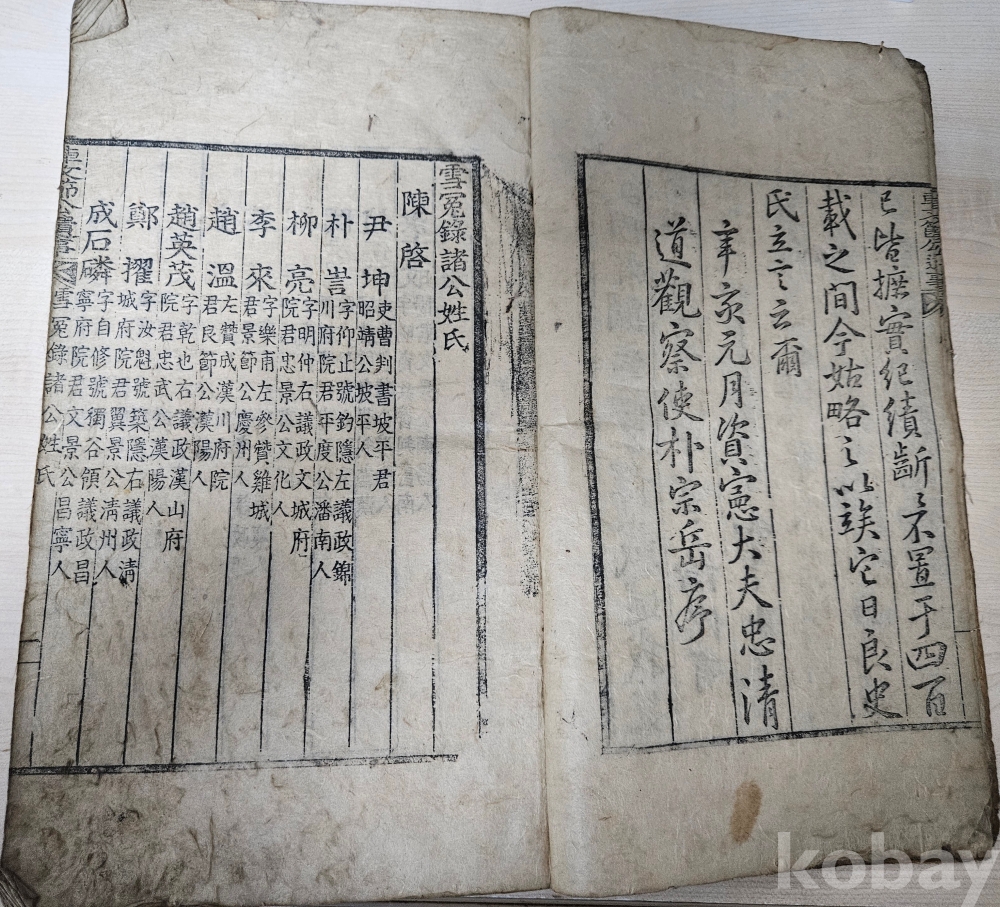 已皆摭實紀績斷〻不置于四百
載之間今姑略之以竢它日良史
氏立言云爾
辛亥元月資憲大夫忠清
道觀察使朴宗岳序
雪冤錄諸公姓氏
陳啓
尹坤 吏曹判書坡平君昭靖公坡平人
朴訔 字仰止號釣隱左議政錦川府院君平度公潘南人
柳亮 字明仲右議政文城府院君忠景公文化人
李來 字樂甫左參贊雞城君景節公慶州人
趙溫 左贊成漢川府院君良節公漢陽人
趙英茂 字乾也右議政漢山府院君忠武公漢陽人
鄭擢 字汝魁號築隱右議政淸城府院君翼景公淸州人
成石磷 字自修號獨谷領議政昌寧府院君文景公昌寧人
雪冤錄諸公姓氏
kobay